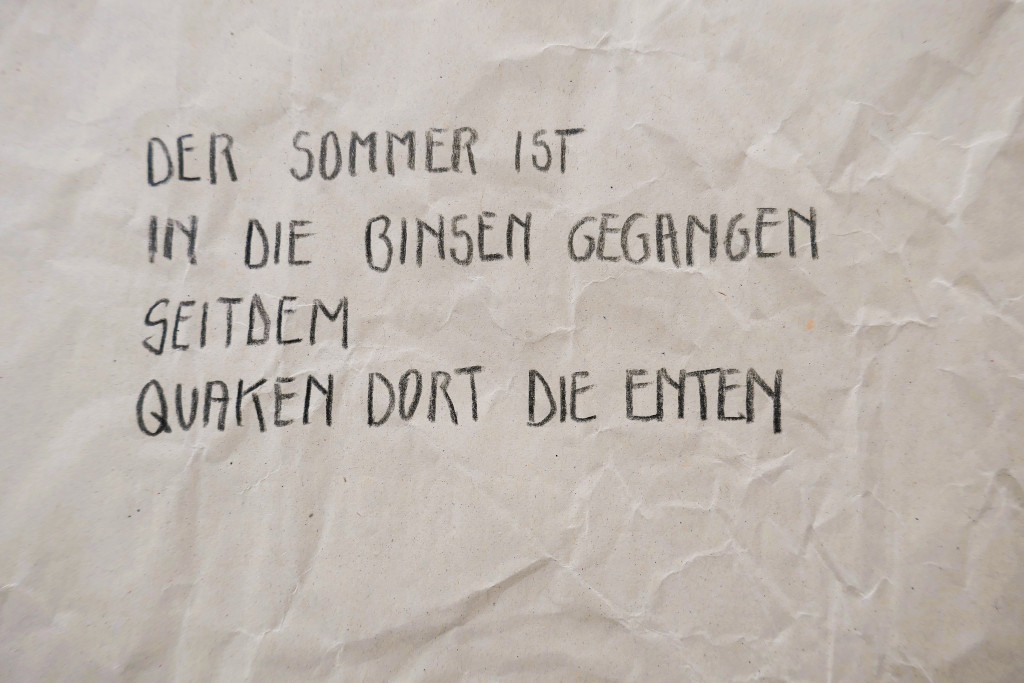 DER SOMMER IST
IN DIE BINSEN GEGANGEN
SEITDEM
QUAKEN DORT DIE ENTEN